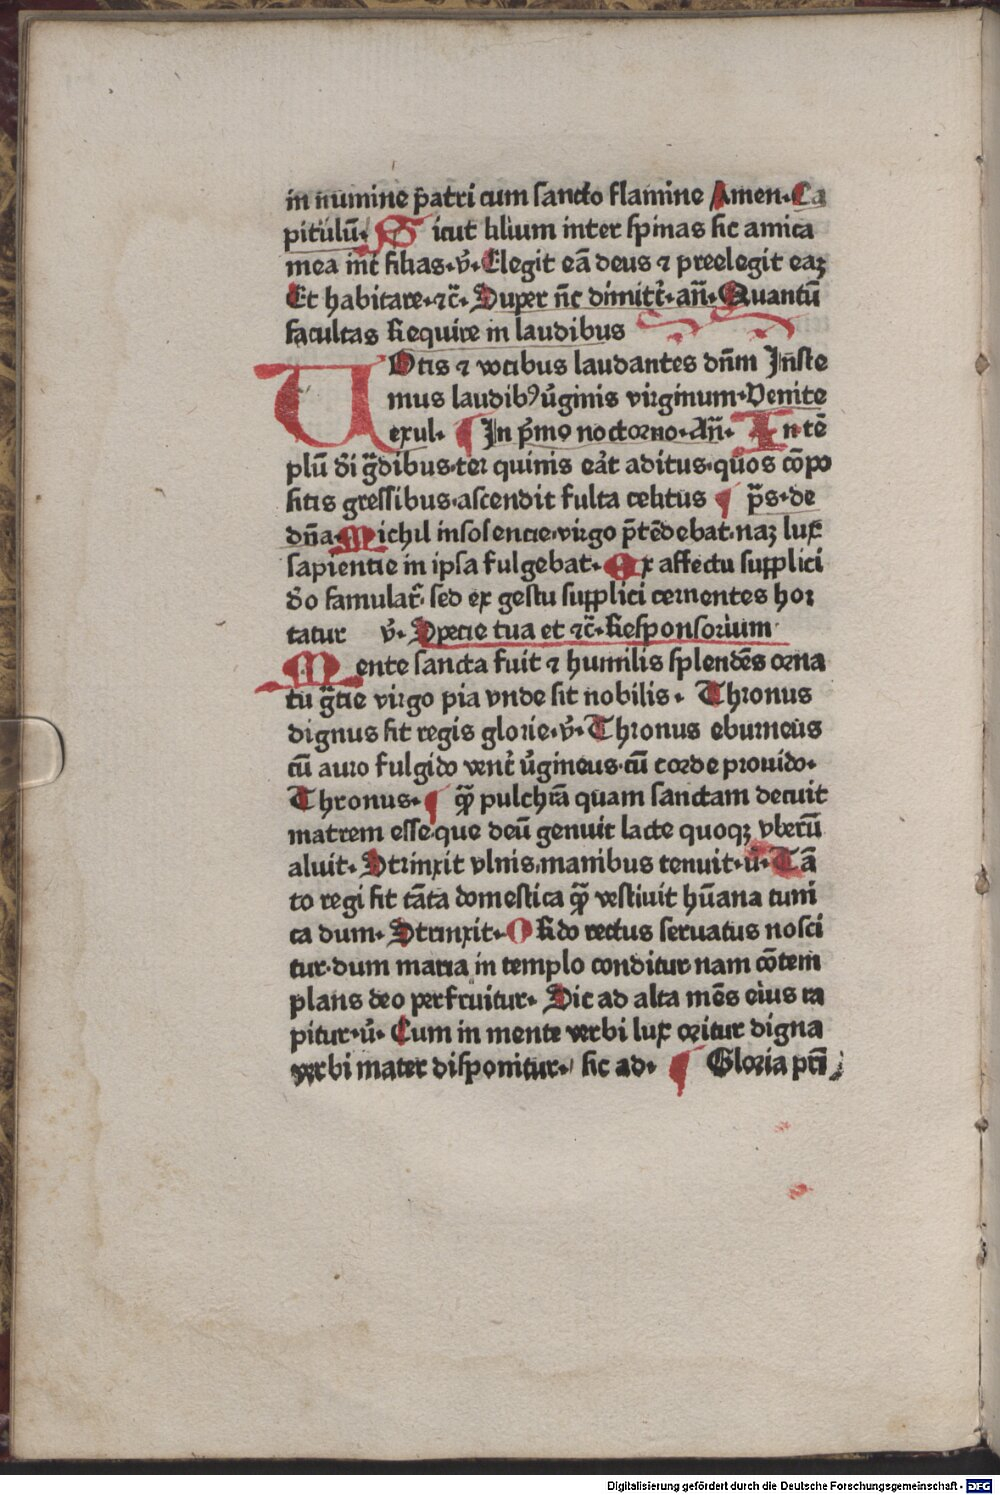 in numine p̄atri cum sancto flamine Amen· Ca
pitulū· Sicut lilium inter spinas sic amica
mea int̄ filias·v̄· Elegit eā deus ⁊ preelegit eaꝫ
Et habitare·⁊c̄· Super n̄c dimitt̄·an̄· Quantū
facultas Require in laudibus
VOtis ⁊ vocibus laudantes dn̄m Jnste
mus laudibꝰ v̄ginis virginum·Venite
exul· ¶ Jn p̄mo nocturno·An̄· Jn tē
plū dī gͣdibus·ter quinis eāt aditus·quos cōpo
sitis gressibus·ascendit fulta celitus ¶ p̄s·de
dn̄a· Nichil insolencie·virgo p̄tēdebat·naꝫ lux
sapiencie in ipsa fulgebat· Ex affectu supplici
dō famulat̄· sed ex gestu supplici cernentes hor
tatur v̄· Specie tua et ⁊c̄· Responsorium
Mente sancta fuit ⁊ humilis splendēs orna
tū gͣcie virgo pia vnde sit nobilis· Thronus
dignus sit regis glorie·v̄· Thronus eburneus
cū auro fulgido vent̄ v̄gineus·cū corde prouido·
Thronus· ¶ qͣ pulchrā quam sanctam decuit
matrem esse·que deū genuit lacte quoqꝫ vberū
aluit· Strinxit vlnis·manibus tenuit·v̄· Tā
to regi sit tāta domestica qͣ vestiuit hūana tuni
ca dum· Strinxit· ORdo rectus seruatus nosci
tur·dum maria in templo conditur nam cōtem
plans deo perfruitur· Sic ad alta mēs eius ra
pitur·v̄· Cum in mente verbi lux oritur digna
verbi mater disponitur· sic ad· ¶ Gloria pr̄i
Digitalisierung gefördert durch die Deutsche Forschungsgemeinschaft - DFG